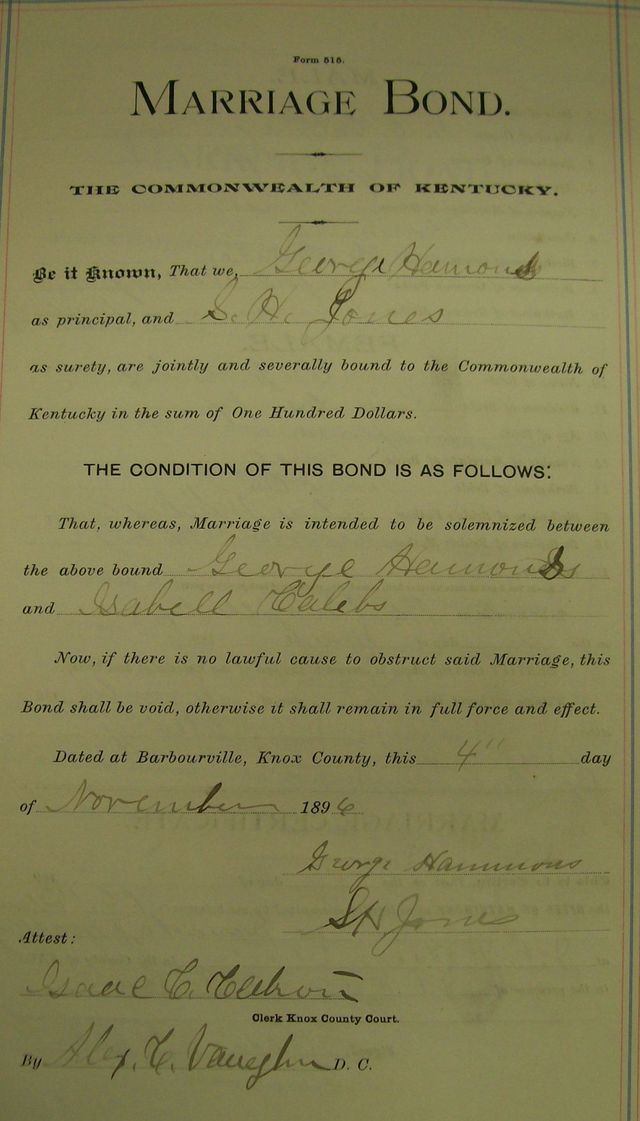 Form 515.
MARRIAGE BOND.
THE COMMONWEALTH OF KENTUCKY.
Be it Known, That we, George Hamonds
as principal, and S. H. Jones
as surety, are jointly and severally bound to the Commonwealth of
Kentucky in the sum of One Hundred Dollars.
THE CONDITION OF THIS BOND IS AS FOLLOWS:
That, whereas, Marriage is intended to be solemnized between
the above bound George Hamonds
and Isabell Calebs
Now, if there is no lawful cause to obstruct said Marriage, this
Bond shall be void, otherwise it shall remain in full force and effect.
Dated at Barbourville, Knox County, this 4" day
of November 1896
George Hammons
SH Jones
Attest:
Isaac C.
Clerk Knox County Court.
By Alex. C. Vaughn D. C.